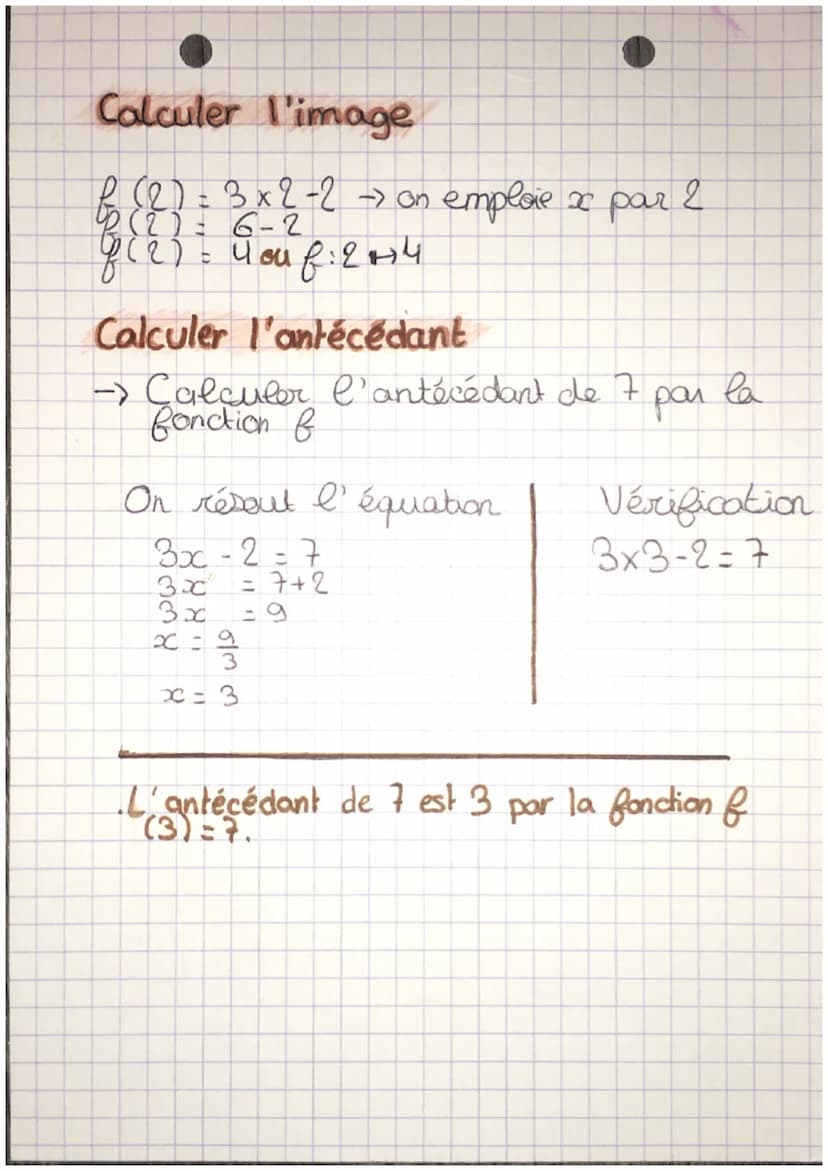 Calculer l'image
f(2) = 3 x 2 - 2 → on emploie x par 2
f(2) = 6 - 2
f(2) = 4 ou f : 2 ↦ 4
Calculer l'antécédant
→ Calculer l'antécédant de 7 par la
fonction f
On résout l'équation
3x - 2 = 7
3x = 7 + 2
3x = 9
x = 9/3
x = 3
Vérification
3 x 3 - 2 = 7
. L'antécédant de 7 est 3 par la fonction f
(3) = 7.